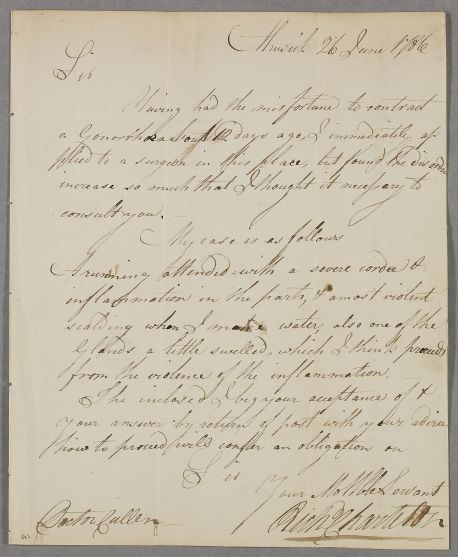 Alnwick 26 June 1786
Sir
Having had the misfortune to contract
a Gonorrhoea about 12 days ago, I immediately ap
plied to a surgeon in this place, but found the disorder
increase so much that I thought it necessary to
consult you. —
My case is as follows
A running attended with a severe cordee &
inflammation in the parts, & a most violent
scalding when I make water, also one of the
Glands a little swelled, which I think proceeds
from the violence of the inflammation. —
The inclosed I beg your acceptance of &
your answer by return of post with your advice
how to proceed will confer an obligation on
Sir
Your Mo: Hble Servant
Doctor Cullen